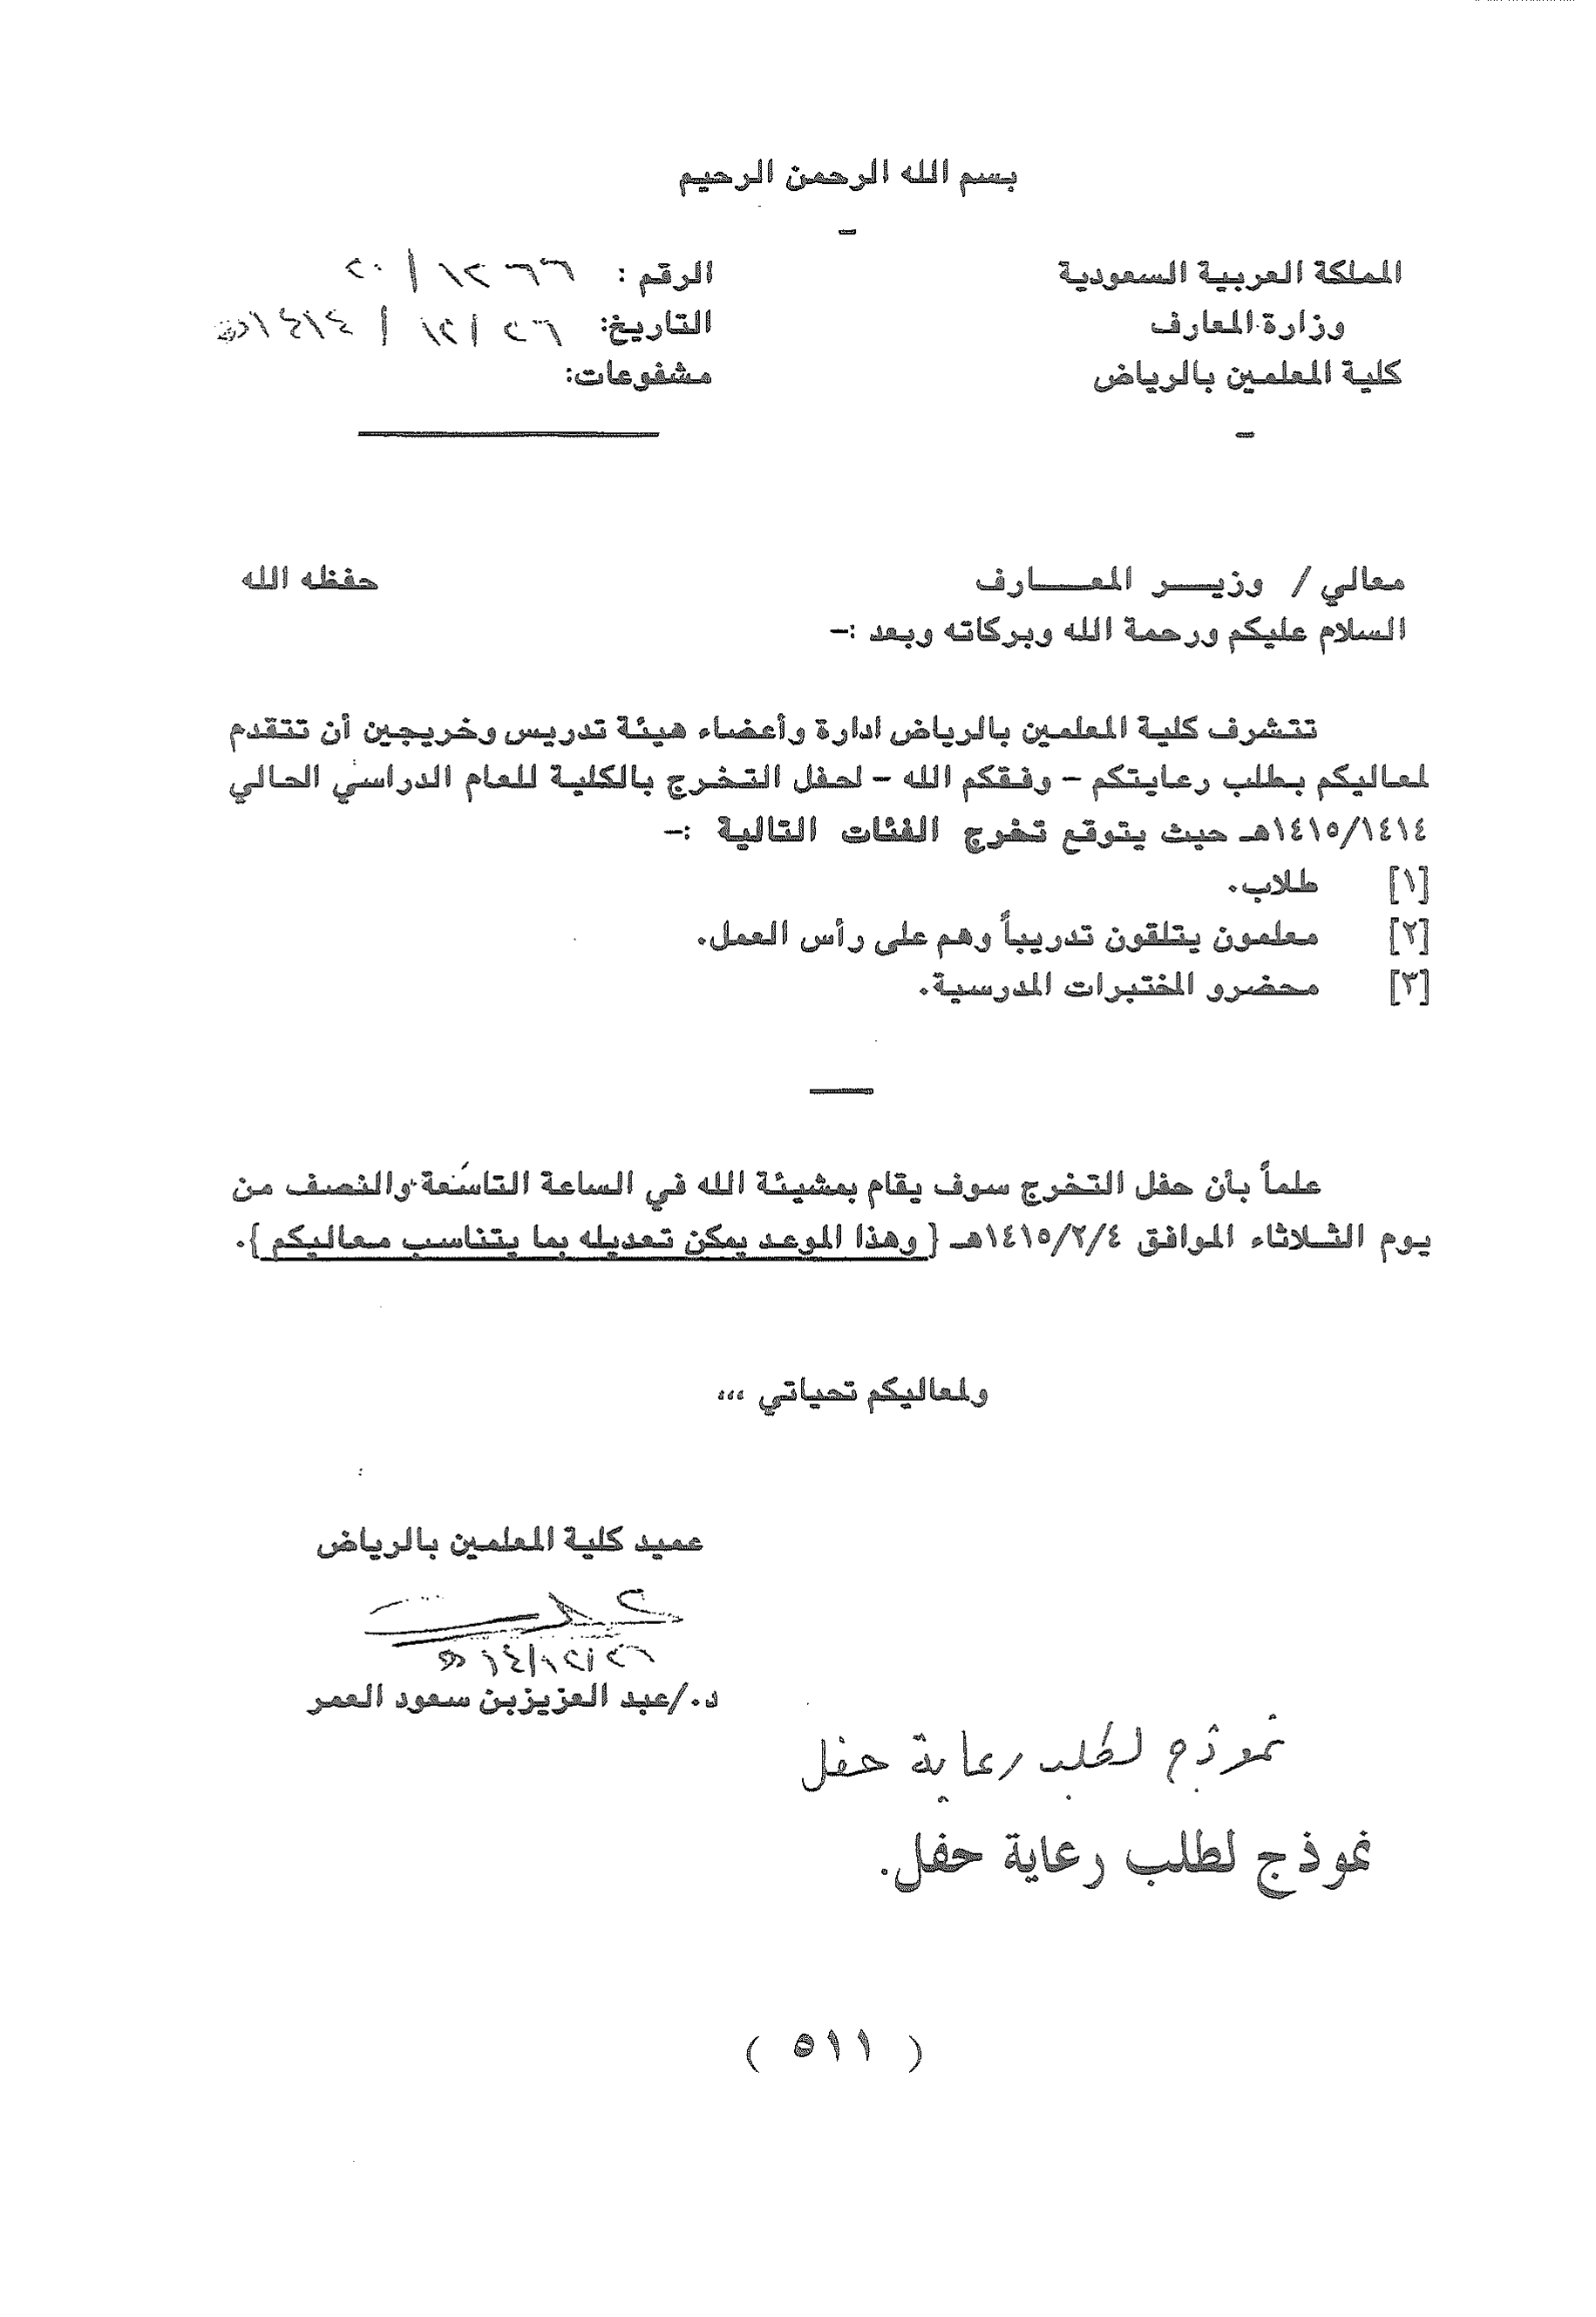 بسم الله الرحمن الرحيم
المملكة العربية السعودية
وزارة المعارف
كلية المعلمين بالرياض
الرقم :
التاريخ: ٢٦ / ١٢ / ١٤١٤هـ
مشفوعات:
معالي / وزيـــر المعـــارف حفظه الله
السلام عليكم ورحمة الله وبركاته وبعد :-
تتشرف كلية المعلمين بالرياض ادارة وأعضاء هيئة تدريس وخريجين أن تتقدم
لمعاليكم بطلب رعايتكم - وفقكم الله - لحفل التخرج بالكلية للعام الدراسي الحالي
١٤١٥/١٤١٤هـ حيث يتوقع تخرج الفئات التالية :-
[١] طلاب.
[٢] معلمون يتلقون تدريباً وهم على رأس العمل.
[٣] محضرو المختبرات المدرسية.
علماً بأن حفل التخرج سوف يقام بمشيئة الله في الساعة التاسعة والنصف من
يوم الثلاثاء الموافق ١٤١٥/٢/٤هـ { وهذا الموعد يمكن تعديله بما يتناسب معاليكم }.
ولمعاليكم تحياتي ،،،
عميد كلية المعلمين بالرياض
د./عبد العزيزبن سعود العمر
نموذج لطلب رعاية حفل
نموذج لطلب رعاية حفل.
( ٥١١ )